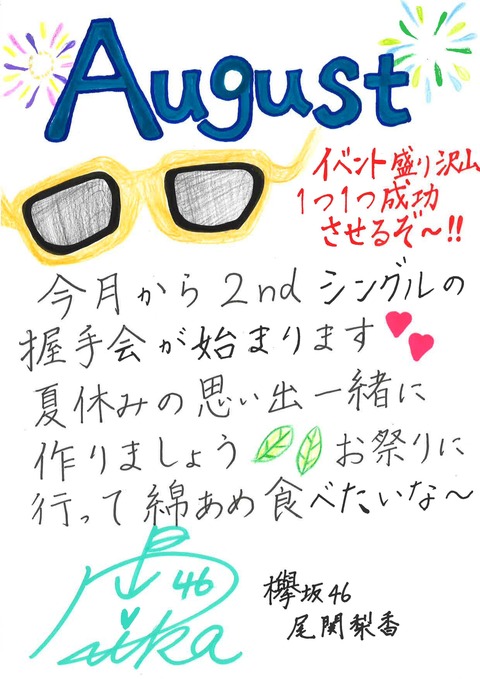 August
イベント盛り沢山
1つ1つ成功
させるぞ〜!!
今月から2ndシングルの
握手会が始まります
夏休みの思い出一緒に
作りましょう お祭りに
行って綿あめ食べたいな〜
46
欅坂46
尾関梨香